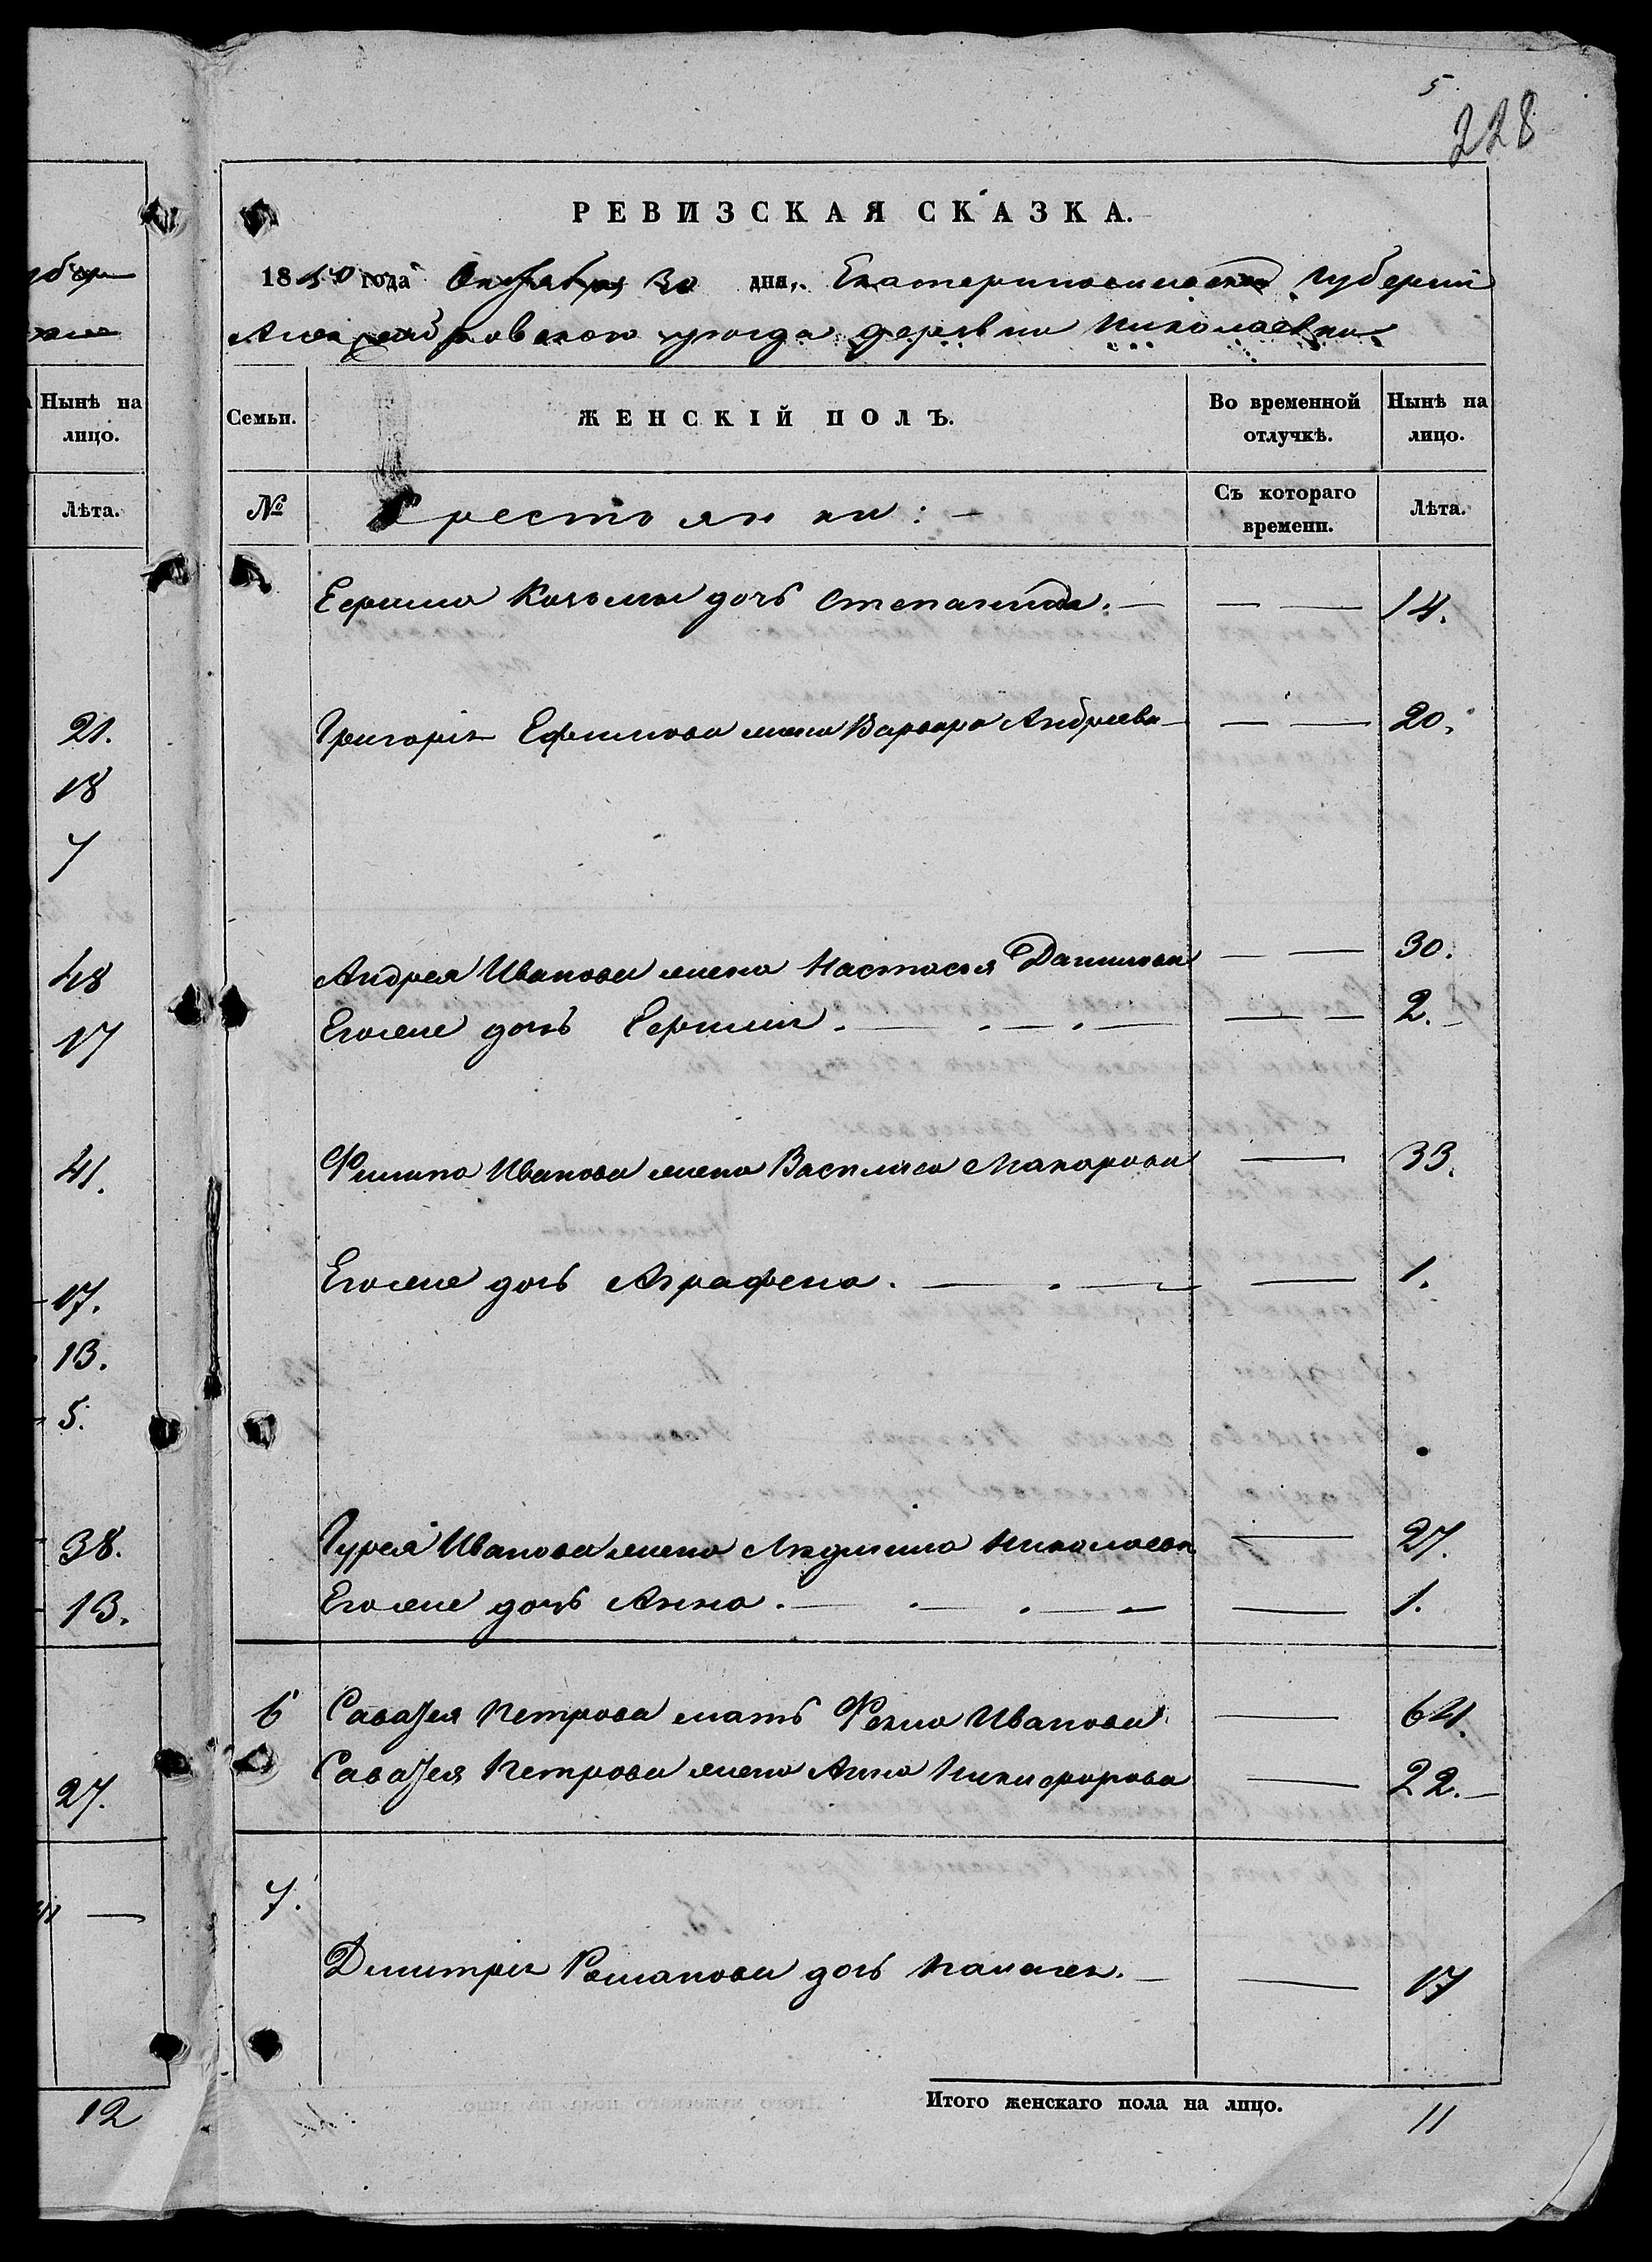 5
228
РЕВИЗСКАЯ СКАЗКА.
1850 года Октября 30 дня, Екатеринославской губернии
Александровского уѣзда деревни Николаевки
Нынѣ на лицо.
Семьи.
ЖЕНСКІЙ ПОЛЪ.
Во временной отлучкѣ.
Нынѣ на лицо.
Лѣта.
№
Крестьянки: —
Съ котораго времени.
Лѣта.
Козьмы дочь Степанида. — — — 14.
21.
Григорія Ефимова жена Варвара Андреева — — — 20.
18
7
Андрея Иванова жена Настасья Данилова — — 30.
48
Его же дочь — . — . — — — 2.
17
Филипа Иванова жена Василиса Макарова — 33.
41.
Его же дочь Аграфена. — . — — 1.
17.
13.
5.
Гурея Иванова жена Людмила Николаева — 27.
38.
Его же дочь Анна. — . — . — — 1.
13.
6 Саватея Петрова мать Фекла Иванова — 64.
Саватея Петрова жена Анна Никифорова — 22.
27.
7.
—
Дмитрія Романова дочь — — 17
Итого женскаго пола на лицо.
12
11